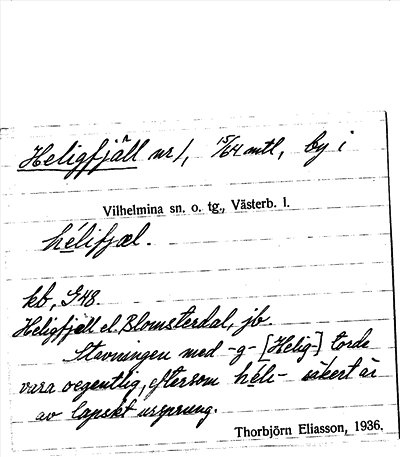 Heligfjäll nr 1, 15/64 mtl, by i
Vilhelmina sn. o. tg., Västerb. l.
hélifjæl.
kb, G48.
Heligfjell el. Blomsterdal, jb.
Stavningen med -g- [Helig-] torde
vara oegentlig, eftersom héli- säkert är
av lapskt ursprung.
Thorbjörn Eliasson, 1936.